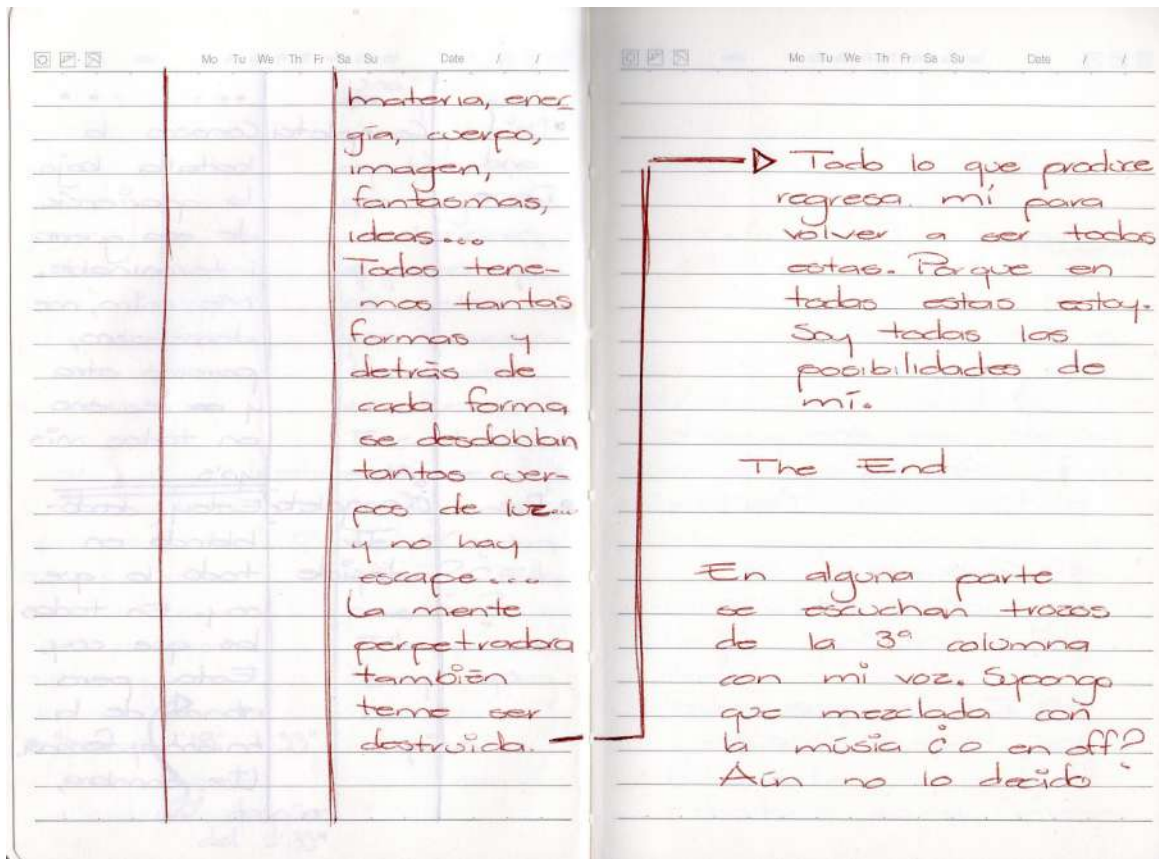 Mo Tu We Th Fr Sa Su Date / /
materia, ener
gía, cuerpo,
imagen,
fantasmas,
ideas...
Todos tene-
mos tantas
formas y
detrás de
cada forma
se desdoblan
tantos cuer-
pos de luz...
y no hay
escape...
La mente
perpetradora
también
teme ser
destruida.
Mo Tu We Th Fr Sa Su Date / /
Todo lo que produce
regresa. mí para
volver a ser todos
estas. Porque en
todas estas estoy.
Soy todas las
posibilidades de
mí.
The End
En alguna parte
se escuchan trozos
de la 3ª columna
con mi voz. Supongo
que mezclada con
la músia ¿o en off?
Aún no lo decido